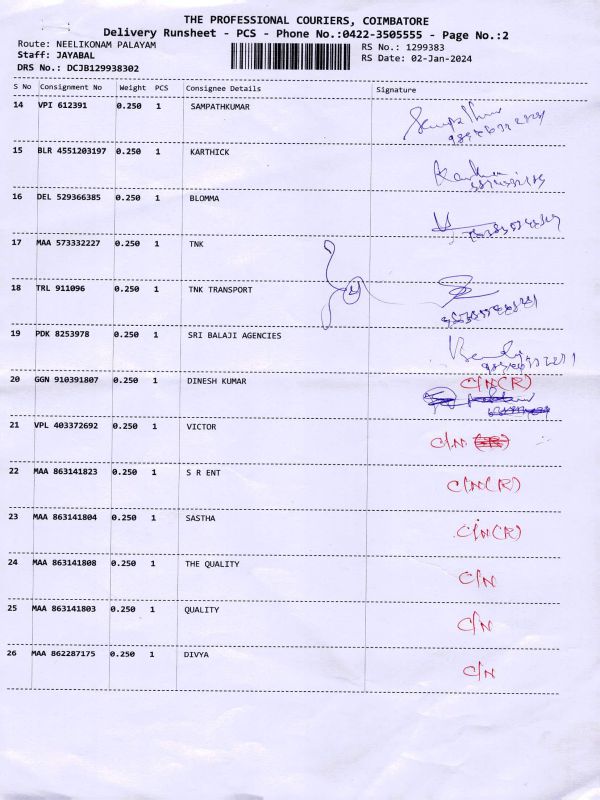 THE PROFESSIONAL COURIERS, COIMBATORE
Delivery Runsheet - PCS - Phone No.:0422-3505555 - Page No.:2
Route: NEELIKONAM PALAYAM
RS No.: 1299383
Staff: JAYABAL
RS Date: 02-Jan-2024
DRS No.: DCJB129938302
S No Consignment No Weight PCS Consignee Details Signature
14 VPI 612391 0.250 1 SAMPATHKUMAR
15 BLR 4551203197 0.250 1 KARTHICK
16 DEL 529366385 0.250 1 BLOMMA
17 MAA 573332227 0.250 1 TNK
18 TRL 911096 0.250 1 TNK TRANSPORT
19 PDK 8253978 0.250 1 SRI BALAJI AGENCIES
20 GGN 910391807 0.250 1 DINESH KUMAR C/N(R)
21 VPL 403372692 0.250 1 VICTOR C/N
22 MAA 863141823 0.250 1 S R ENT C/N(R)
23 MAA 863141804 0.250 1 SASTHA C/N(R)
24 MAA 863141808 0.250 1 THE QUALITY C/N
25 MAA 863141803 0.250 1 QUALITY C/N
26 MAA 862287175 0.250 1 DIVYA C/N